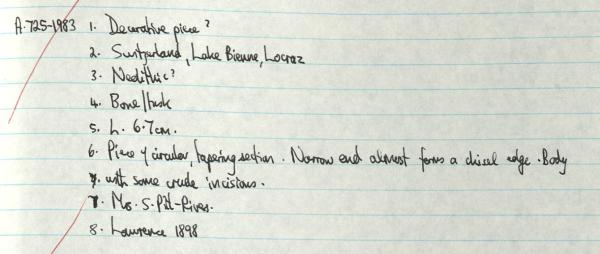 A.725-1983 1. Decorative piece?
2. Switzerland, Lake Bienne, Locraz
3. Neolithic?
4. Bone/tusk
5. L. 6.7cm.
6. Piece of circular, tapering section. Narrow end almost forms a chisel edge. Body
with some crude incisions.
7. Mrs. S. Pitt-Rivers.
8. Lawrence 1898